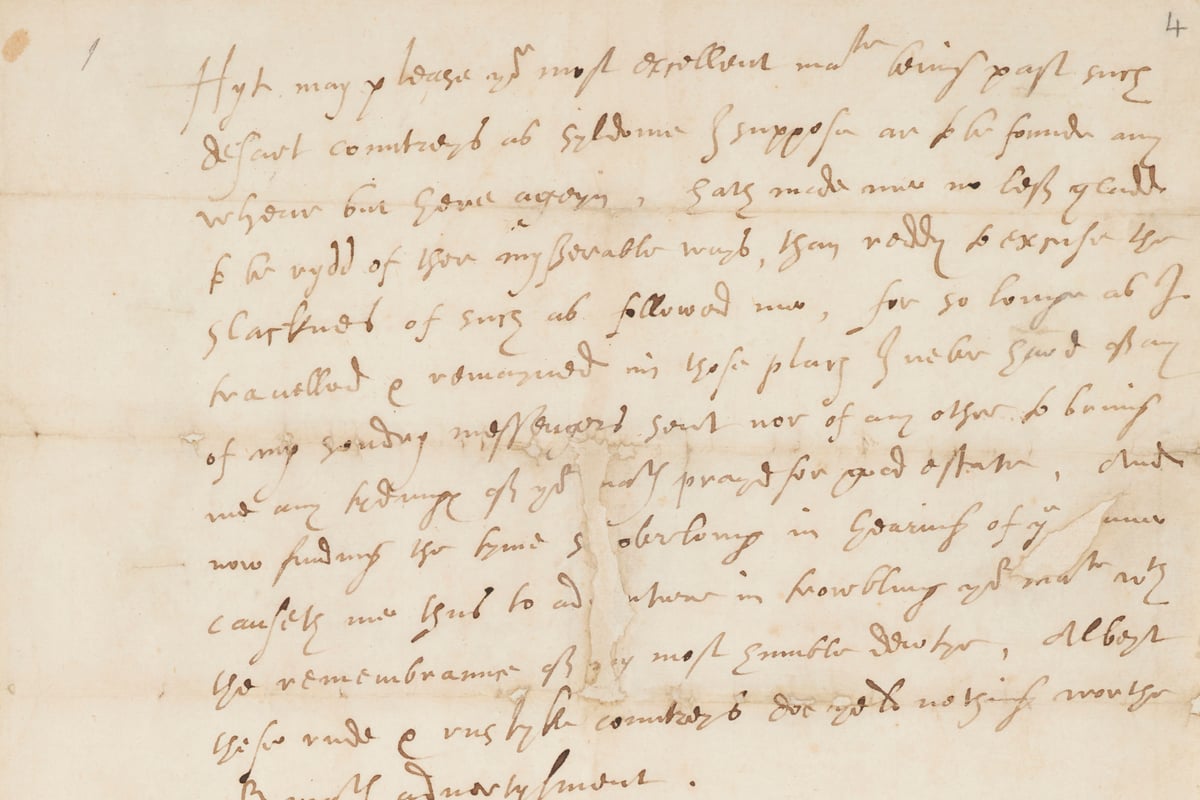 4
Hyt may please yor most excellent matie beinge past such
desart countreys as syldome I suppose ar to be founde any
whear but here ageyn, hath made mee no less gladde
to be rydd of ther mysserable ways, than reddy to excuse the
slacknes of such as followed mee, for so longe as I
travelled & remayned in those places I never hard off any
of my sondry messengers sent nor of any other to bringe
me any tydings off yor maties prayd for good estate, And
now findinge the tyme s overlong in hearing of
causeth me thus to ad nture in trowbling yor matie wth
the remembrance off my most humble dewtye, Albeyt
these rude & rustykke countreys doe yeld nothinge worthe
advertysment.